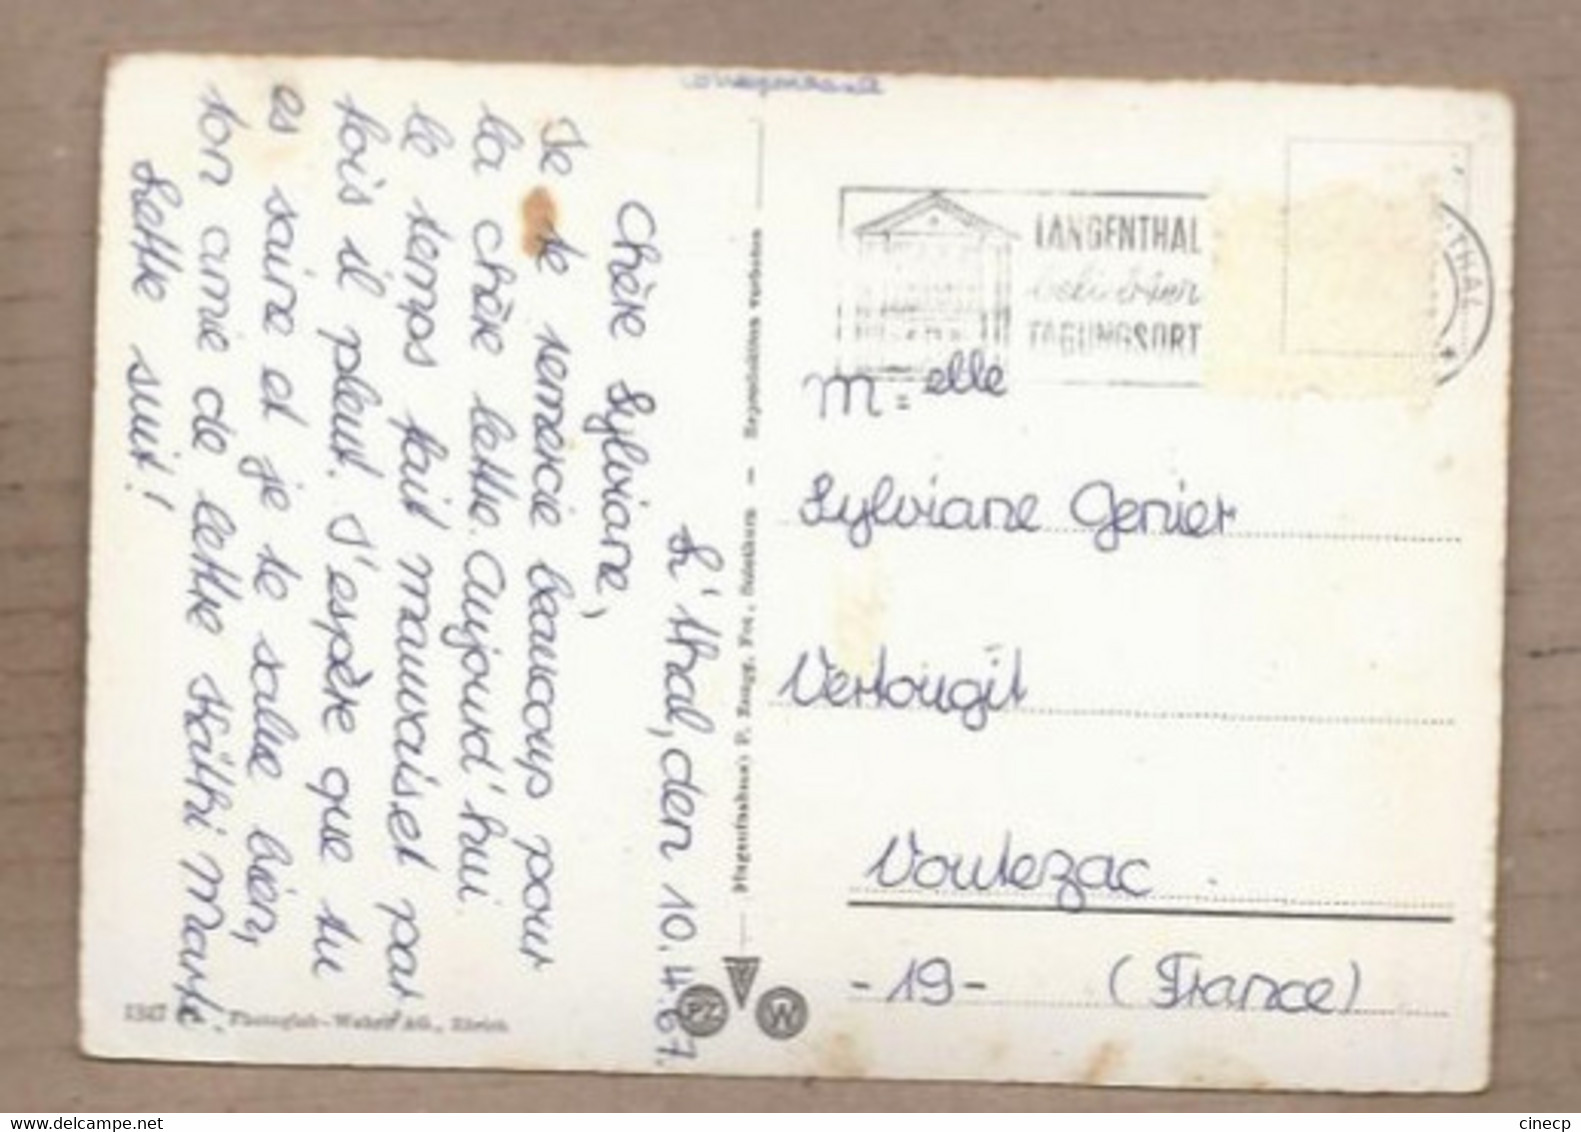 Correspondance
L'thal, den 10.4.67.
Chère Sylviane,
Je te remercie beaucoup pour
la chère lettre. Aujourd'hui
le temps fait mauvais et par
fois il pleut. J'espère que tu
es saine et je te salue bien,
ton amie de lettre Käthi Marti
Lettre suit!
1347
Photoglob-Wehrli AG., Zürich
Plugaufnahmen P. Zaugg, Fot., Solothurn - Reproduktion verboten
PZ
W
LANGENTHAL
beliebter
TAGUNGSORT
THAL
M:elle
Sylviane Genier
Vertougit
Voutezac
-19- (France)
delcampe.net
cinecp